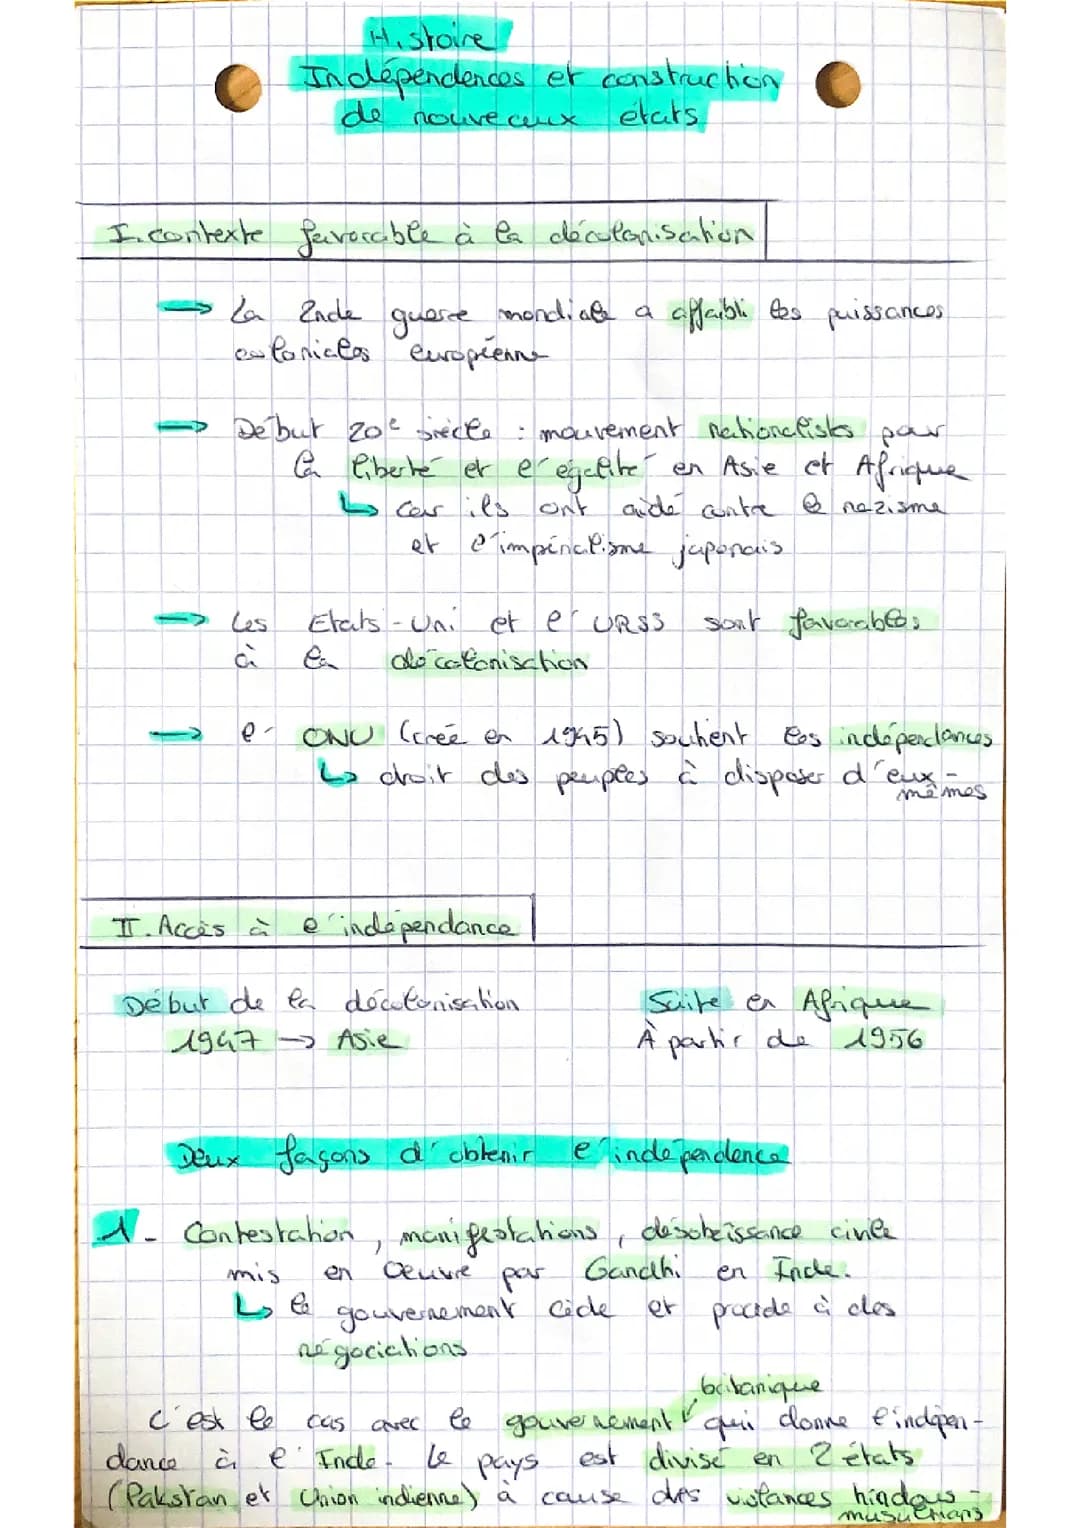 Histoire
Indépendences et construction
de nouveaux états
I. contexte favorable à la décolonisation
→ La 2nde guerre mondiale a affaibli les puissances
coloniales européenne
→ Début 20e siècle : mouvement nationalists pour
la liberté et l'égalité en Asie et Afrique
↳ car ils ont aidé contre le nazisme
et l'impérialisme japonais
→ Les Etats-Uni et l'URSS sont favorables
à la décolonisation
→ l'ONU (créé en 1945) soutient les indépendances
↳ droit des peuples à disposer d'eux-
mêmes
II. Accès à l'indépendance
Début de la décolonisation
1947 → Asie
Suite en Afrique
À partir de 1956
Deux façons d'obtenir l'indépendence
1- Contestation, manifestations, désobeissance civile
mis en Oeuvre par Gandhi en Inde.
↳ le gouvernement cède et procède à des
négociations
britanique
C'est le cas avec le gouvernement qui donne l'indépen-
dance à l'Inde. Le pays est divisé en 2 états
(Pakstan et Union indienne) à cause des violances hindous-
musulmans